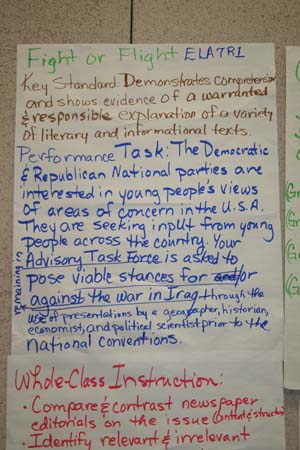 Fight or Flight ELA7R1
Key Standard: Demonstrates comprehension
and shows evidence of a warranted
& responsible explanation of a variety
of literary and informational texts.
Performance Task: The Democratic
& Republican National parties are
interested in young people's views
of areas of concern in the U.S.A.
They are seeking input from young
people across the country. Your
Advisory Task Force is asked to
pose viable stances for and/or
against the war in Iraq through the
use of presentations by a geographer, historian,
economist, and political scientist prior to the
national conventions.
Whole-Class Instruction:
• Compare & contrast newspaper
editorials on the issue (content & structure)
• Identify relevant & irrelevant